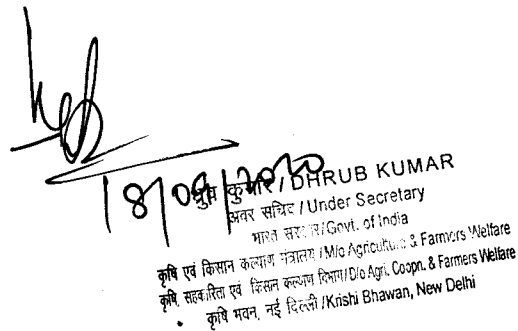 18/09/2020
ध्रुव कुमार/DHRUB KUMAR
अवर सचिव/Under Secretary
भारत सरकार/Govt. of India
कृषि एवं किसान कल्याण मंत्रालय/M/o Agriculture & Farmers Welfare
कृषि, सहकारिता एवं किसान कल्याण विभाग/D/o Agri. Coopn. & Farmers Welfare
कृषि भवन, नई दिल्ली/Krishi Bhawan, New Delhi